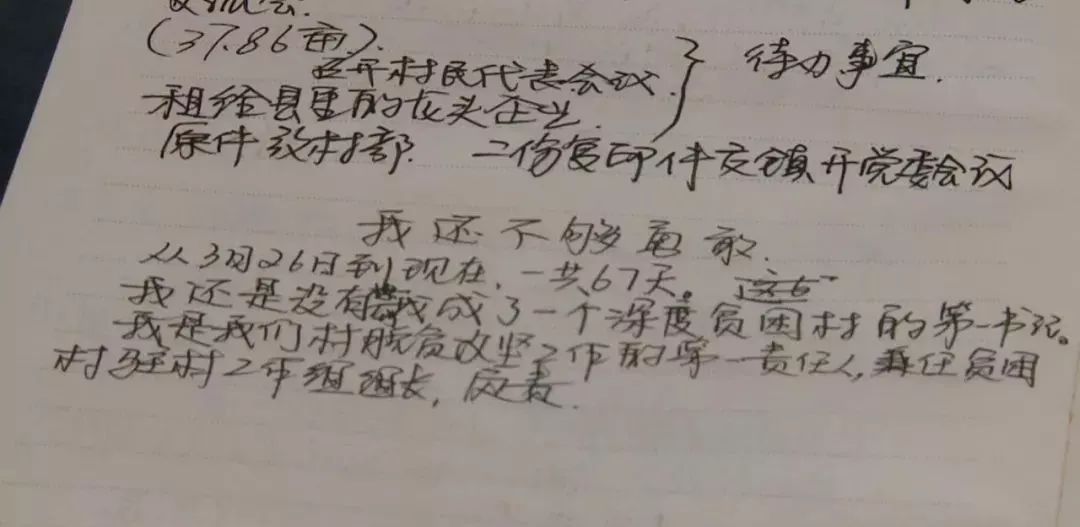 (37.86亩).
召开村民代表会议. } 待办事宜.
租给县里的龙头企业.
原件放村部. 二份复印件交镇开党委会议
我还不够勇敢.
从3月26日到现在,一共67天。这67
我还是没有 我成了一个深度贫困村的第一书记。
我是我们村脱贫攻坚工作的第一责任人,兼任贫困
村驻村工作组组长,应责.